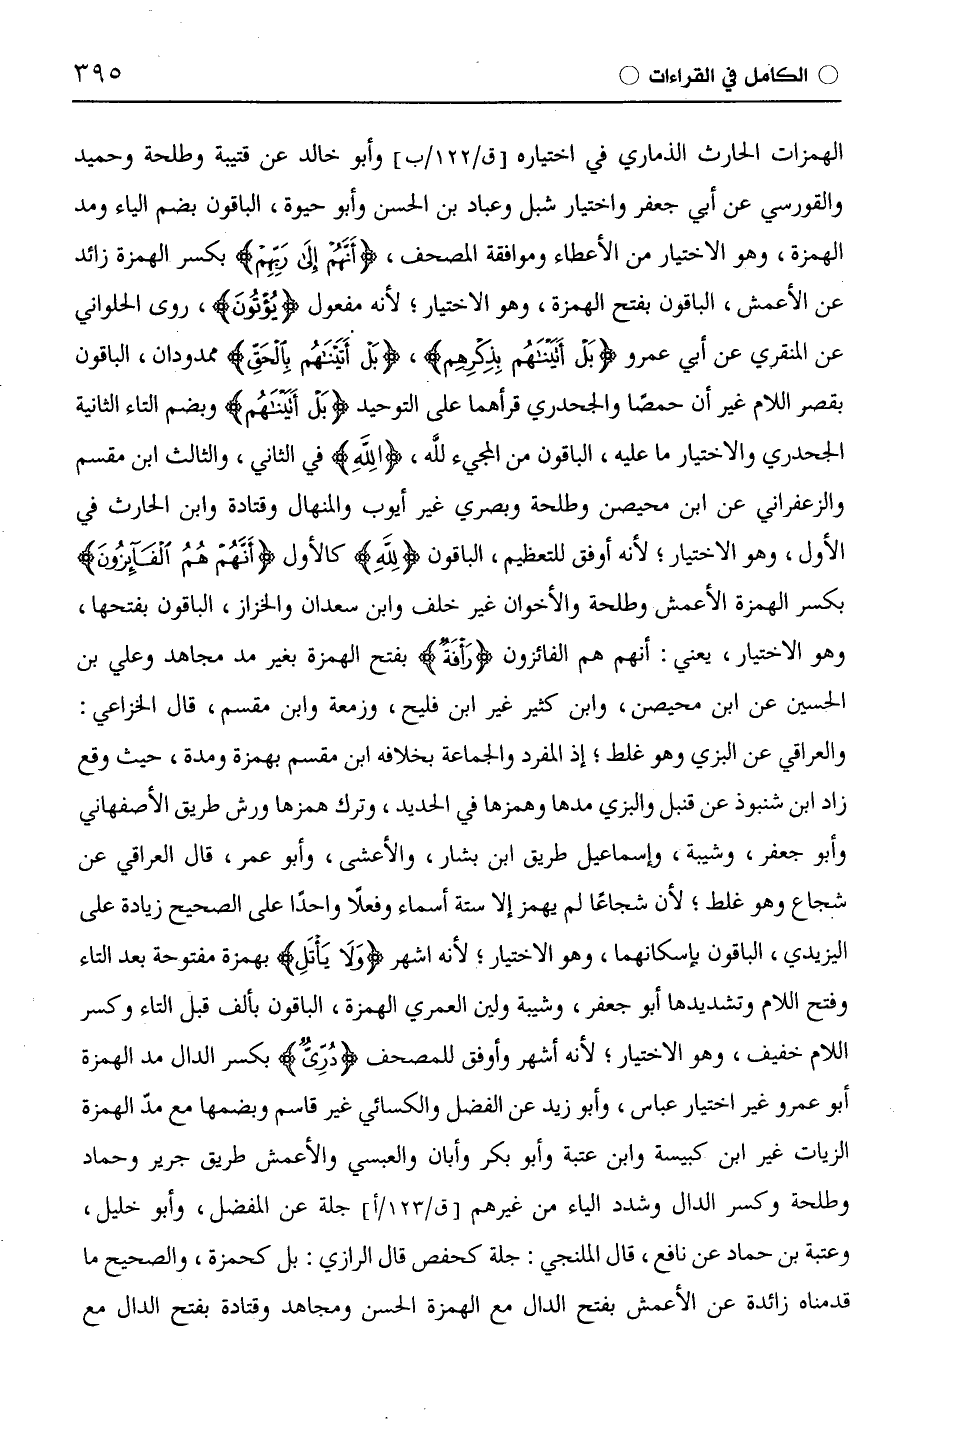 ○ الكامل في القراءات ○
٣٩٥
الهمزات الحارث الذماري في اختياره [ق/١٢٢/ب] وأبو خالد عن قتيبة وطلحة وحميد
والقورسي عن أبي جعفر واختيار شبل وعباد بن الحسن وأبو حيوة ، الباقون بضم الياء ومد
الهمزة ، وهو الاختيار من الأعطاء وموافقة المصحف ، ﴿أَنَّهُمْ إِلَىٰ رَبِّهِمْ﴾ بكسر الهمزة زائد
عن الأعمش ، الباقون بفتح الهمزة ، وهو الاختيار ؛ لأنه مفعول ﴿يُؤْتُونَ﴾ ، روى الحلواني
عن المنقري عن أبي عمرو ﴿بَلْ أَتَيْنَٰهُم بِذِكْرِهِم﴾ ، ﴿بَلْ أَتَيْنَٰهُم بِٱلْحَقِّ﴾ ممدودان ، الباقون
بقصر اللام غير أن حمصًا والجحدري قرأهما على التوحيد ﴿بَلْ أَتَيْنَٰهُم﴾ وبضم التاء الثانية
الجحدري والاختيار ما عليه ، الباقون من المجيء للَّه ، ﴿اللهِ﴾ في الثاني ، والثالث ابن مقسم
والزعفراني عن ابن محيصن وطلحة وبصري غير أيوب والمنهال وقتادة وابن الحارث في
الأول ، وهو الاختيار ؛ لأنه أوفق للتعظيم ، الباقون ﴿لِلَّهِ﴾ كالأول ﴿أَنَّهُمْ هُمُ ٱلْفَآئِزُونَ﴾
بكسر الهمزة الأعمش وطلحة والأخوان غير خلف وابن سعدان والخزاز ، الباقون بفتحها ،
وهو الاختيار ، يعني : أنهم هم الفائزون ﴿رَأْفَةٌ﴾ بفتح الهمزة بغير مد مجاهد وعلي بن
الحسين عن ابن محيصن ، وابن كثير غير ابن فليح ، وزمعة وابن مقسم ، قال الخزاعي :
والعراقي عن البزي وهو غلط ؛ إذ المفرد والجماعة بخلافه ابن مقسم بهمزة ومدة ، حيث وقع
زاد ابن شنبوذ عن قنبل والبزي مدها وهمزها في الحديد ، وترك همزها ورش طريق الأصفهاني
وأبو جعفر ، وشيبة ، وإسماعيل طريق ابن بشار ، والأعشى ، وأبو عمر ، قال العراقي عن
شجاع وهو غلط ؛ لأن شجاعًا لم يهمز إلا ستة أسماء وفعلًا واحدًا على الصحيح زيادة على
اليزيدي ، الباقون بإسكانهما ، وهو الاختيار ؛ لأنه اشهر ﴿وَلَا يَأْتَلِ﴾ بهمزة مفتوحة بعد التاء
وفتح اللام وتشديدها أبو جعفر ، وشيبة ولين العمري الهمزة ، الباقون بألف قبل التاء وكسر
اللام خفيف ، وهو الاختيار ؛ لأنه أشهر وأوفق للمصحف ﴿دُرِّىٌّ﴾ بكسر الدال مد الهمزة
أبو عمرو غير اختيار عباس ، وأبو زيد عن الفضل والكسائي غير قاسم وبضمها مع مدّ الهمزة
الزيات غير ابن كبيسة وابن عتبة وأبو بكر وأبان والعبسي والأعمش طريق جرير وحماد
وطلحة وكسر الدال وشدد الياء من غيرهم [ق/١٢٣/أ] جلة عن المفضل ، وأبو خليل ،
وعتبة بن حماد عن نافع ، قال الملنجي : جلة كحفص قال الرازي : بل كحمزة ، والصحيح ما
قدمناه زائدة عن الأعمش بفتح الدال مع الهمزة الحسن ومجاهد وقتادة بفتح الدال مع